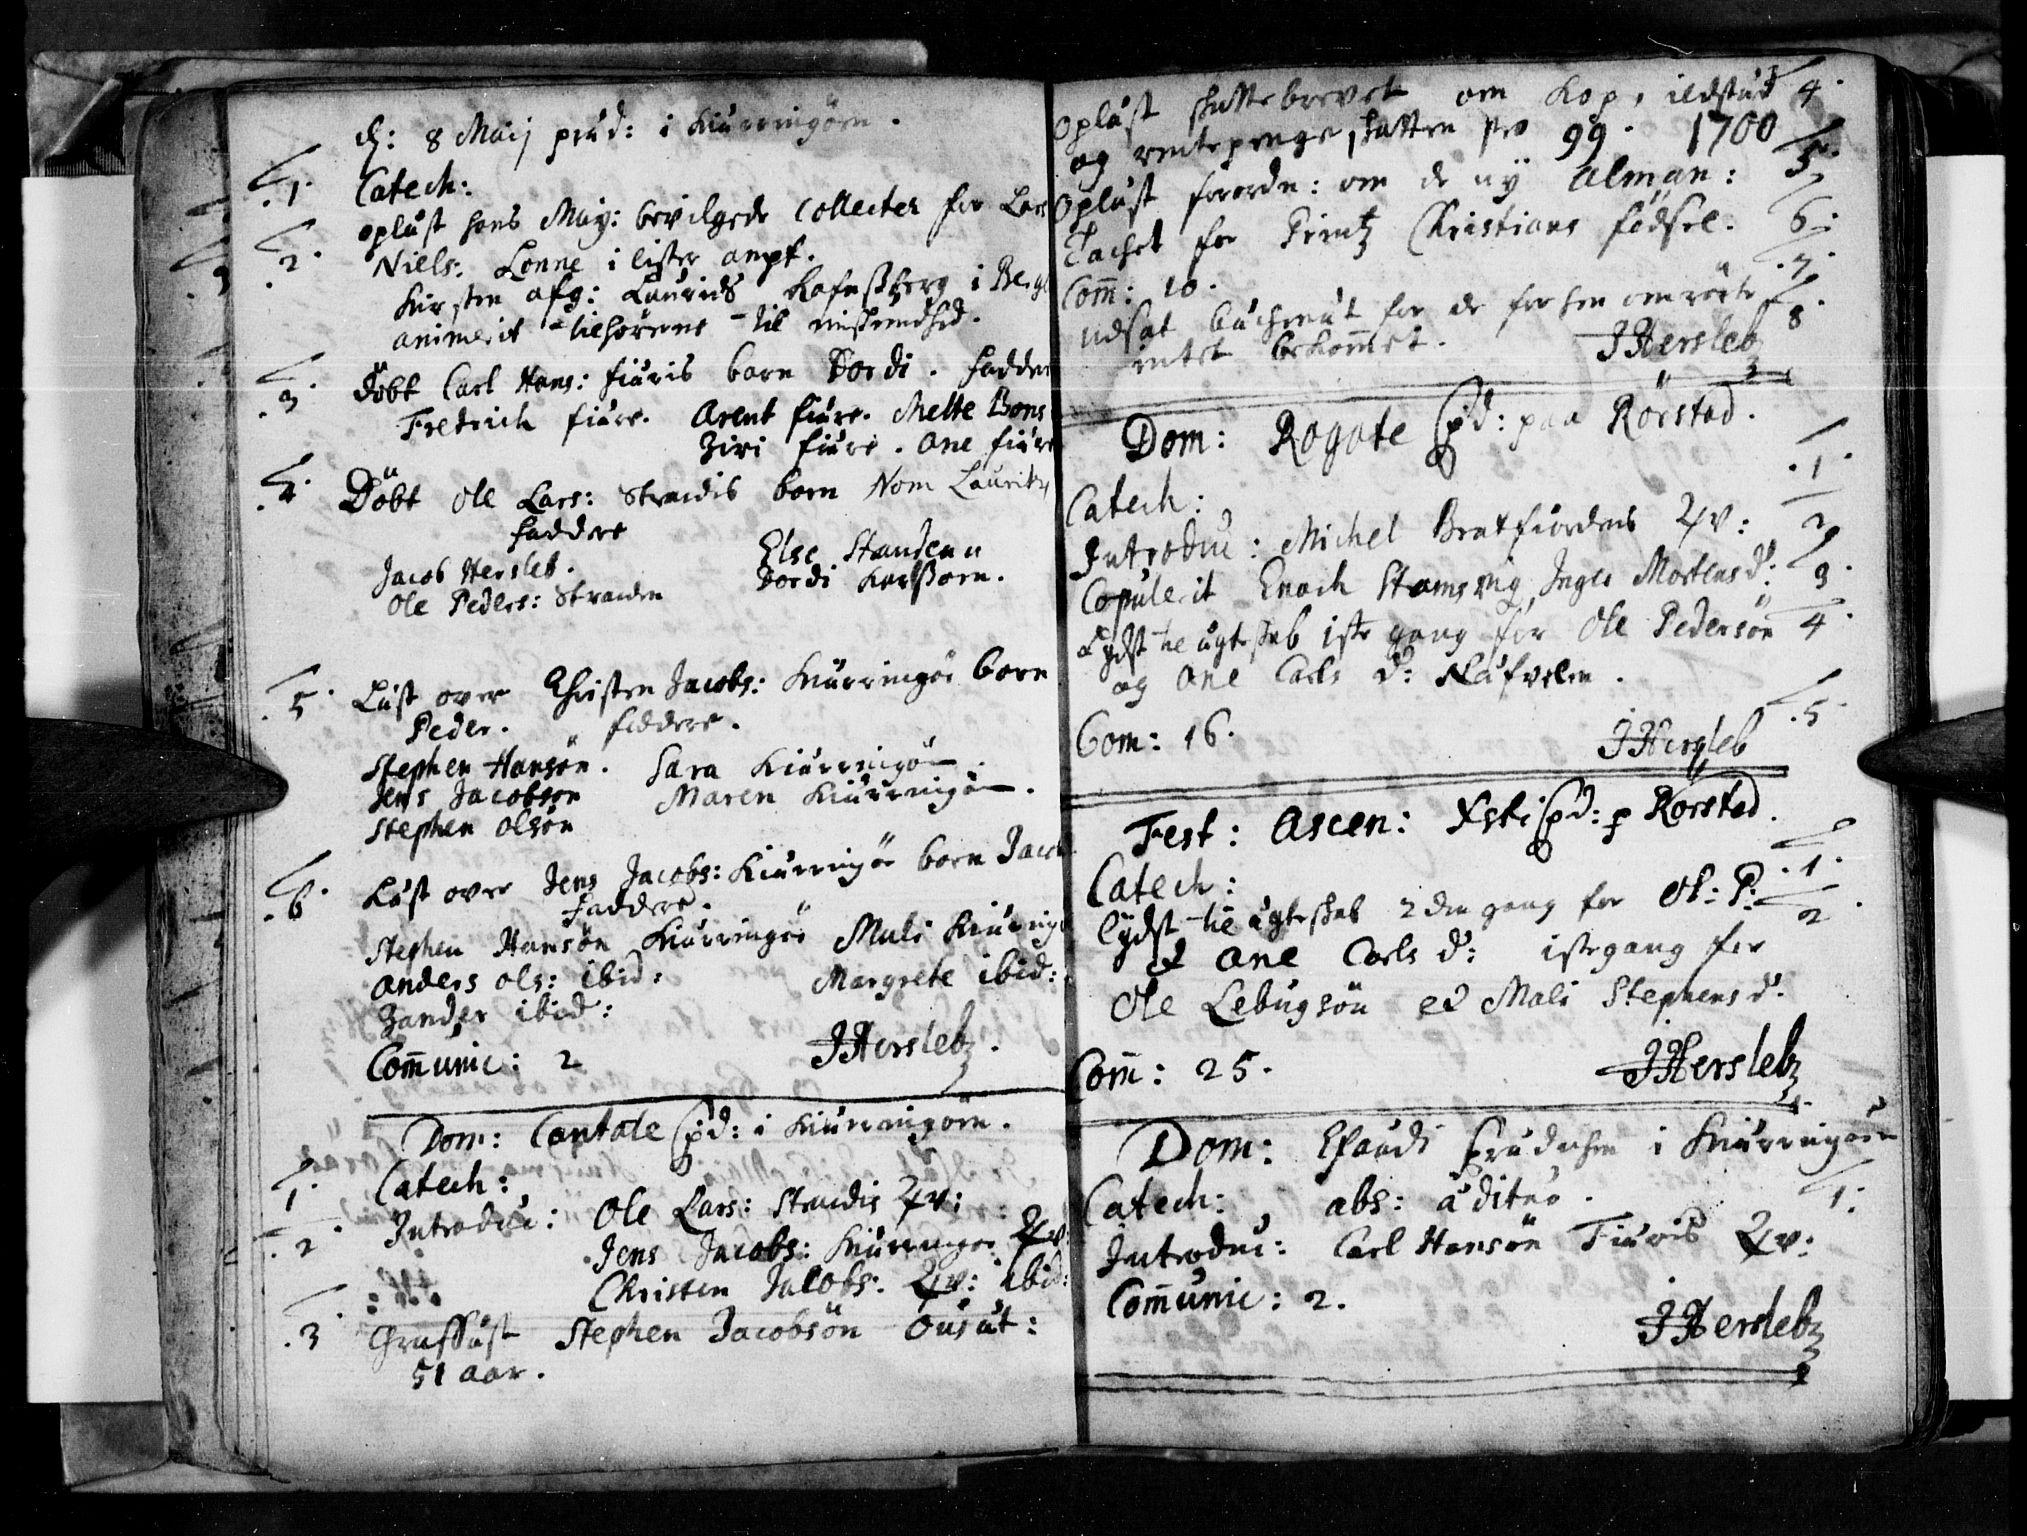 d: 8 Maij præd: i Kiærringöen.
1. Catech:
2. oplæst hans May: bevilgede Collecter for
Niels: Lonne i lister ampt.
Kirsten afg: Laurids i
animerit tilhörerne til
3. döbt Carl Hans: fiæris barn Dordi. fadder
Fredrich fiære. Arent fiære. Mette
Ziri fiære. Ane fiære
4. Döbt Ole Lars: Strandis barn Nom Laurits
faddere
Jacob Hersleb. Else Stranden
Ole Peders: Stranden Dordi
5. Læst over Christen Jacobs: Kiærringöe barn
Peder. faddere.
Stephen Hansön. Sara Kiærringöe.
Jens Jacobsen Maren Kiærringöe.
Stephen olsön
6. Læst over Jens Jacobs: Kiærringöe barn Jacob
faddere.
Stephen Hansön Kiærringöe Mali Kiærringö
Anders ols: ibid: Margrete ibid:
Zander ibid:
Com̄unic: 2 JHersleb.
Dom: Cantate præd: i Kiærringöen.
1. Catech:
2. Introduc: Ole Lars: Strandis Qv:
Jens Jacobs: Kiærringöe Qv:
Christen Jacobs: Qv: ibid:
3. Graffæst Stephen Jacobsön
51 aar.
Oplæst skattebrevet om Kop, ildsted 4.
og rentepenge skatten pro 99. 1700
Oplæst forordn: om de ny Alman: 5.
Tachet for Printz Christians födsel. 6.
Com̄: 10. 7.
udsat for de for hen 8.
intet bekom̄et. JHersleb
Dom: Rogate præd: paa Rörstad.
Catech: 1.
Introduc: Michel Bratfiordens Qv: 2
Copulerit Enoch Inger Mortens d: 3.
Lydst til ægteskab 1ste gang for Ole Pedersön 4.
og Ane Carls d:
Com: 16. 5.
JHersleb
Fest: Ascen: Xsti præd: p Rörstad.
Catech: 1.
lydst til ægteskab 2den gang for Ol: P: 2.
& Ane Carls d: 1ste gang for
Ole Lebugsön et Mali Stephens d.
Com̄: 25. JHersleb
Dom: Exaudi prædichen i Kiærringöen
Catech: abs: ædituo. 1.
Introduc: Carl Hansön Fiæris Qv:
Com̄unic: 2.
JHersleb